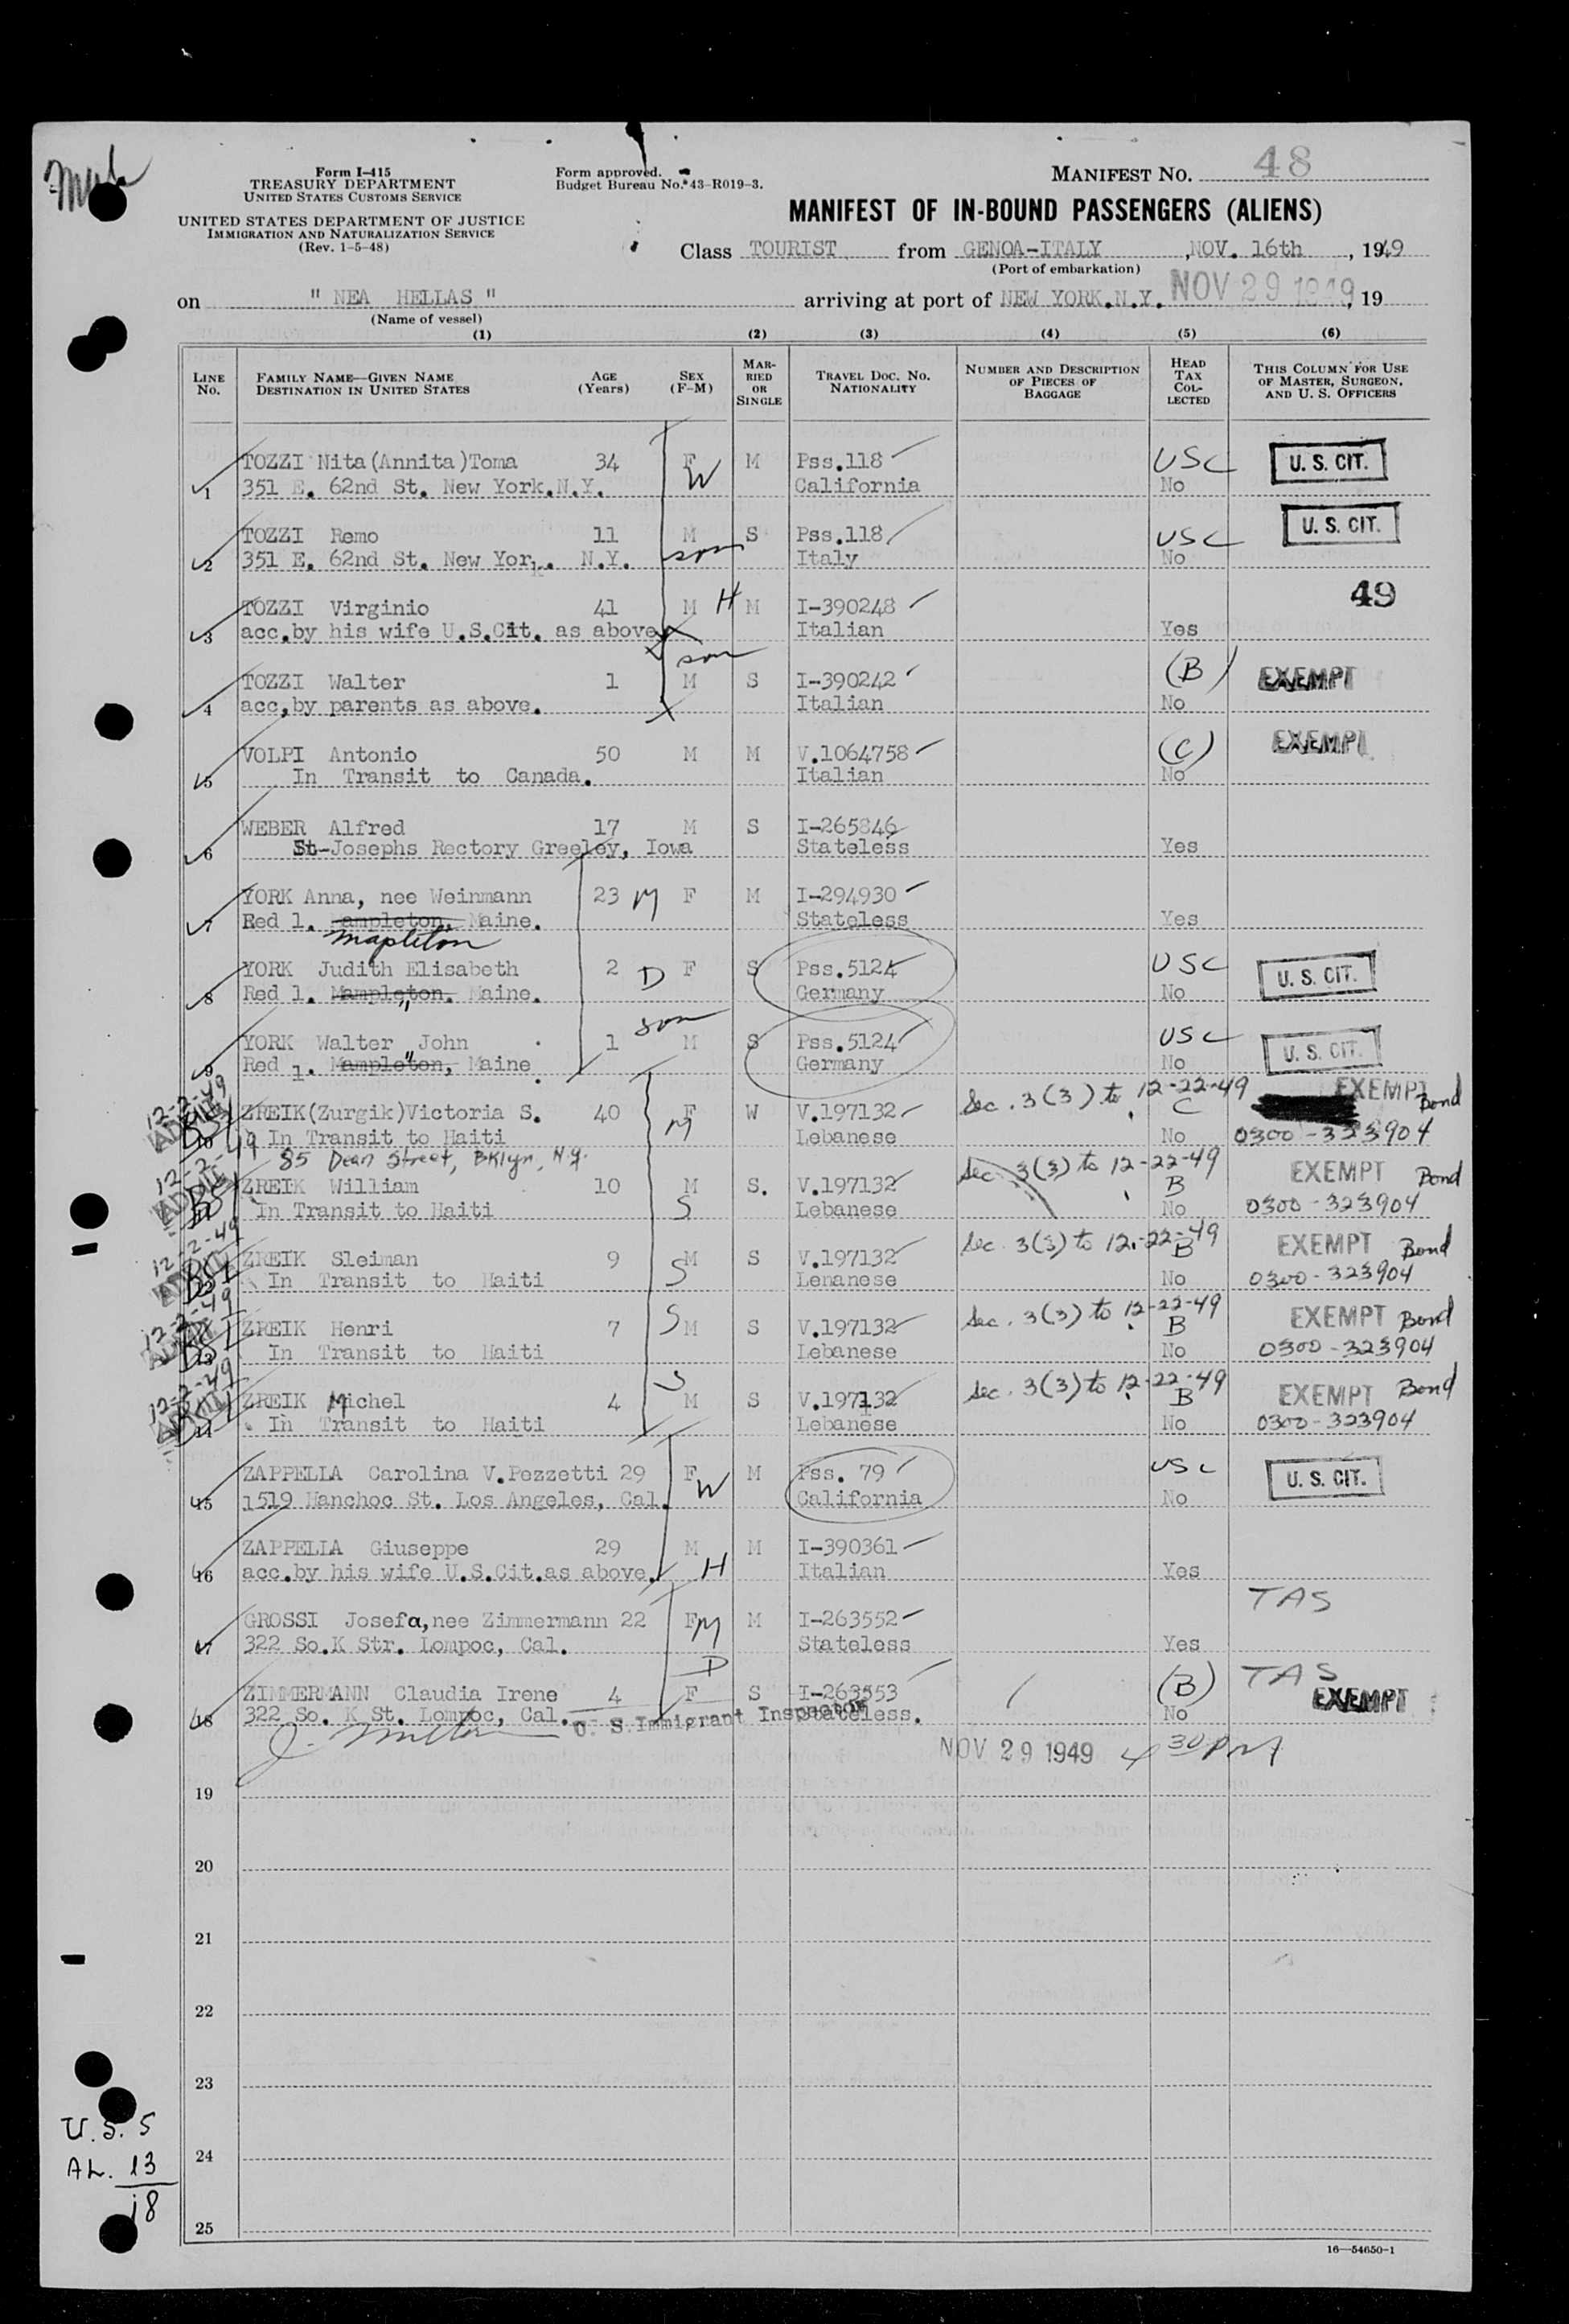 Form I-415
TREASURY DEPARTMENT
UNITED STATES CUSTOMS SERVICE
UNITED STATES DEPARTMENT OF JUSTICE
IMMIGRATION AND NATURALIZATION SERVICE
(Rev. 1-5-48)
Form approved.
Budget Bureau No. 43-R019-3.
MANIFEST NO. 48
MANIFEST OF IN-BOUND PASSENGERS (ALIENS)
Class TOURIST from GENOA-ITALY, NOV. 16th, 1949
(Port of embarkation)
on " NEA HELLAS " arriving at port of NEW YORK.N.Y. NOV 29 1949, 19
(Name of vessel)
(1) (2) (3) (4) (5) (6)
LINE No. FAMILY NAME—GIVEN NAME DESTINATION IN UNITED STATES AGE (Years) SEX (F-M) MARRIED OR SINGLE TRAVEL DOC. NO. NATIONALITY NUMBER AND DESCRIPTION OF PIECES OF BAGGAGE HEAD TAX COLLECTED THIS COLUMN FOR USE OF MASTER, SURGEON, AND U. S. OFFICERS
TOZZI Nita(Annita)Toma 34 F W M Pss.118 USC U. S. CIT.
1 351 E. 62nd St. New York.N.Y. California No
TOZZI Remo 11 M S Pss.118 USC U. S. CIT.
2 351 E. 62nd St. New York. N.Y. son Italy No
49
TOZZI Virginio 41 M H M I-390248
3 acc.by his wife U.S.Cit. as above Italian Yes
son
TOZZI Walter 1 M S I-390242 (B) EXEMPT
4 acc.by parents as above. Italian No
VOLPI Antonio 50 M M V.1064758 (C) EXEMPT
5 In Transit to Canada. Italian No
WEBER Alfred 17 M S I-265846
6 St-Josephs Rectory Greeley, Iowa Stateless Yes
YORK Anna, nee Weinmann 23 M F M I-294930
7 Red 1. Mampleton, Maine. Stateless Yes
Mapleton
YORK Judith Elisabeth 2 D F S Pss.5124 USC U. S. CIT.
8 Red 1. Mampleton. Maine. Germany No
"
son
YORK Walter John 1 M S Pss.5124 USC U. S. CIT.
9 Red 1. Mampleton, Maine Germany No
"
12-2-49 ADMIT Sec. 3(3) to 12-22-49 EXEMPT Bond
ZREIK(Zurgik)Victoria S. 40 F M W V.197132 C
10 In Transit to Haiti Lebanese No 0300-323904
85 Dean Street, Bklyn, N.Y.
12-2-49 ADMIT Sec. 3(3) to 12-22-49 EXEMPT Bond
ZREIK William 10 M S. V.197132 B
11 In Transit to Haiti S Lebanese No 0300-323904
12-2-49 ADMIT Sec. 3(3) to 12-22-49 EXEMPT Bond
ZREIK Sleiman 9 M S V.197132 B
12 In Transit to Haiti S Lenanese No 0300-323904
12-2-49 ADMIT Sec. 3(3) to 12-22-49 EXEMPT Bond
ZREIK Henri 7 S M S V.197132 B
13 In Transit to Haiti Lebanese No 0300-323904
12-2-49 ADMIT S Sec. 3(3) to 12-22-49 EXEMPT Bond
ZREIK Michel 4 M S V.197132 B
14 In Transit to Haiti Lebanese No 0300-323904
ZAPPELLA Carolina V.Pezzetti 29 F W M Pss. 79 USC U. S. CIT.
15 1519 Hanchoc St. Los Angeles, Cal. California No
ZAPPELLA Giuseppe 29 M M I-390361
16 acc.by his wife U.S.Cit.as above. H Italian Yes
TAS
GROSSI Josefa,nee Zimmermann 22 F M M I-263552
17 322 So.K Str. Lompoc, Cal. Stateless Yes
D
ZIMMERMANN Claudia Irene 4 F S I-263553 (B) TAS EXEMPT
18 322 So. K St. Lompoc, Cal. Stateless. No
U. S. Immigrant Inspector
NOV 29 1949 4 30 PM
19
20
21
22
23
24
25
U.S. 5
AL. 13
18
16—54650-1